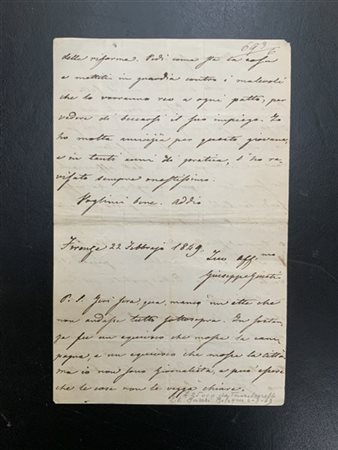 della riforma. Vedi come sta la cosa
e mettiti in guardia contro i malevoli
che lo vorranno reo a ogni patto, per
vedere di beccarsi il suo impiego. Io
ho molta amicizia per questo giovane,
e in tanti anni di pratica, l'ho ra-
visato sempre onestissimo.
Vogliimi bene. Addio
Firenze 22 Febbrajo 1849.
Tuo aff.mo
Giuseppe Giusti
P. S. Jeri sera qua, mancò un ette che
non andasse tutto sottosopra. In sostan-
za fu un equivoco che mosse la cam-
pagna, e un equivoco che mosse la città,
ma io non sono giornalista, e può essere
che le cose non le vegga chiare.